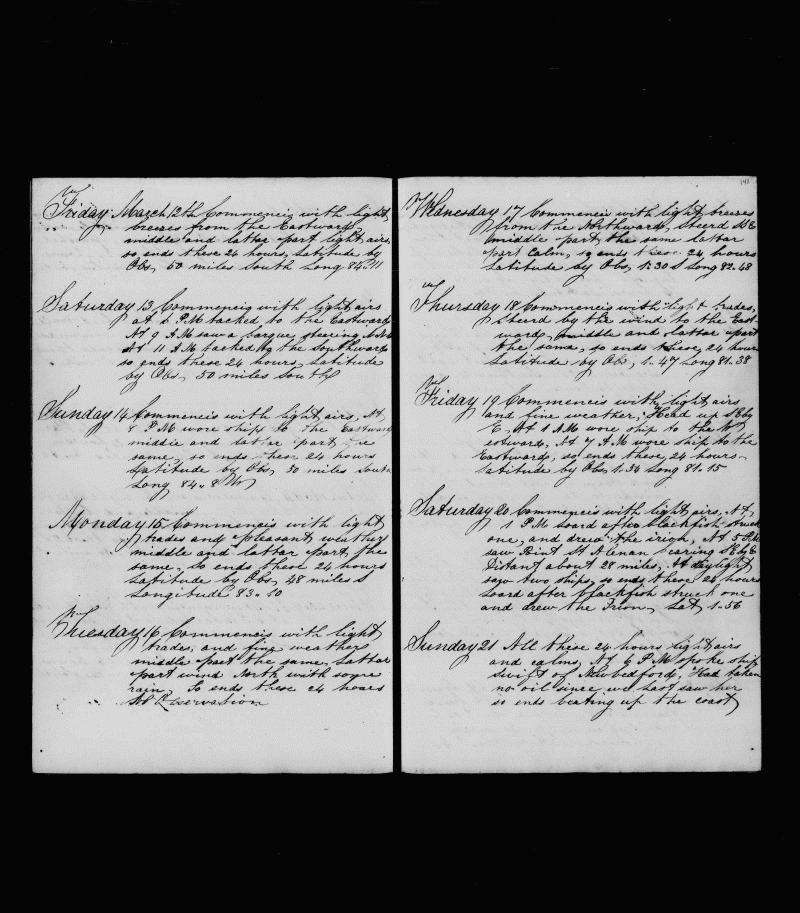 Friday March 12th Commencis with light
breezes from the Eastward,
middle and lattar part light airs,
so ends these 24 hours, Latitude by
Obs, 50 miles South Long 84..11
Saturday 13 Commencis with light airs
at 5 P.M tacked to the Eastward,
At 9 A M saw a barque, stearing
At 11 A.M tacked to the Southward
so ends these 24 hours, Latitude
by Obs, 50 miles South
Sunday 14 Commencis with light airs, At
8 P M wore ship to the Eastward
middle and lattar part the
same, so ends these 24 hours
Latitude by Obs, 30 miles South
Long 84..8 W
Monday 15 Commencis with light
trades and pleasant weather,
middle and lattar part, the
same, so ends these 24 hours
Latitude by Obs, 48 miles S
Longitude 83..10
Tuesday 16 Commencis with light
trades, and fine weather,
middle part the same, Lattar
part wind North with some
rain, So ends these 24 hours
No Observasion
141
Wednesday 17 Commencis with light breezes
from the Northward, steerd
middle part, the same lattar
part Calm, so ends these 24 hours
Latitude by Obs, 1.30 S Long 82.48
Thursday 18 Commencis with light trades,
steerd by the wind to the East
ward, middle and lattar part
the same, so ends these, 24 hours
Latitude by Obs, 1..47 Long 81..38
Friday 19 Commencis with light airs
and fine weather, Head up SE by
E, At 1 A M wore ship to the W
estward, At 7 A M wore ship to the
Eastward, so ends these, 24 hours
Latitude by Obs 1..34 Long 81..15
Saturday 20 Commencis with light airs, At,
1 P.M loard after blackfish struck
one, and drew the irign, At 5 P.M
saw Point St Alenan bearing SE by E
Distant about 28 miles, At daylight
saw two ships, so ends these 24 hours
Loard after blackfish struck one
and drew the Irion, Lat 1..56
Sunday 21 All these 24 hours light airs
and calms, At 6 P M spoke ship
swift of Newbedford, Had taken
no oil since we last saw her
so ends beating up the coast